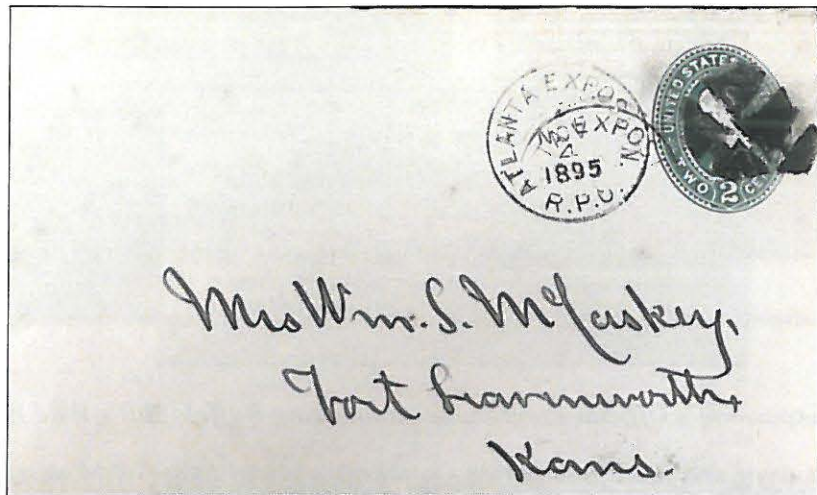 ATLANTA EXPOS
EXPON.
NOV
4
1895
R.P.O.
UNITED STATES
TWO 2 CE
Mrs Wm. S. McCaskey,
Fort Leavenworth,
Kans.